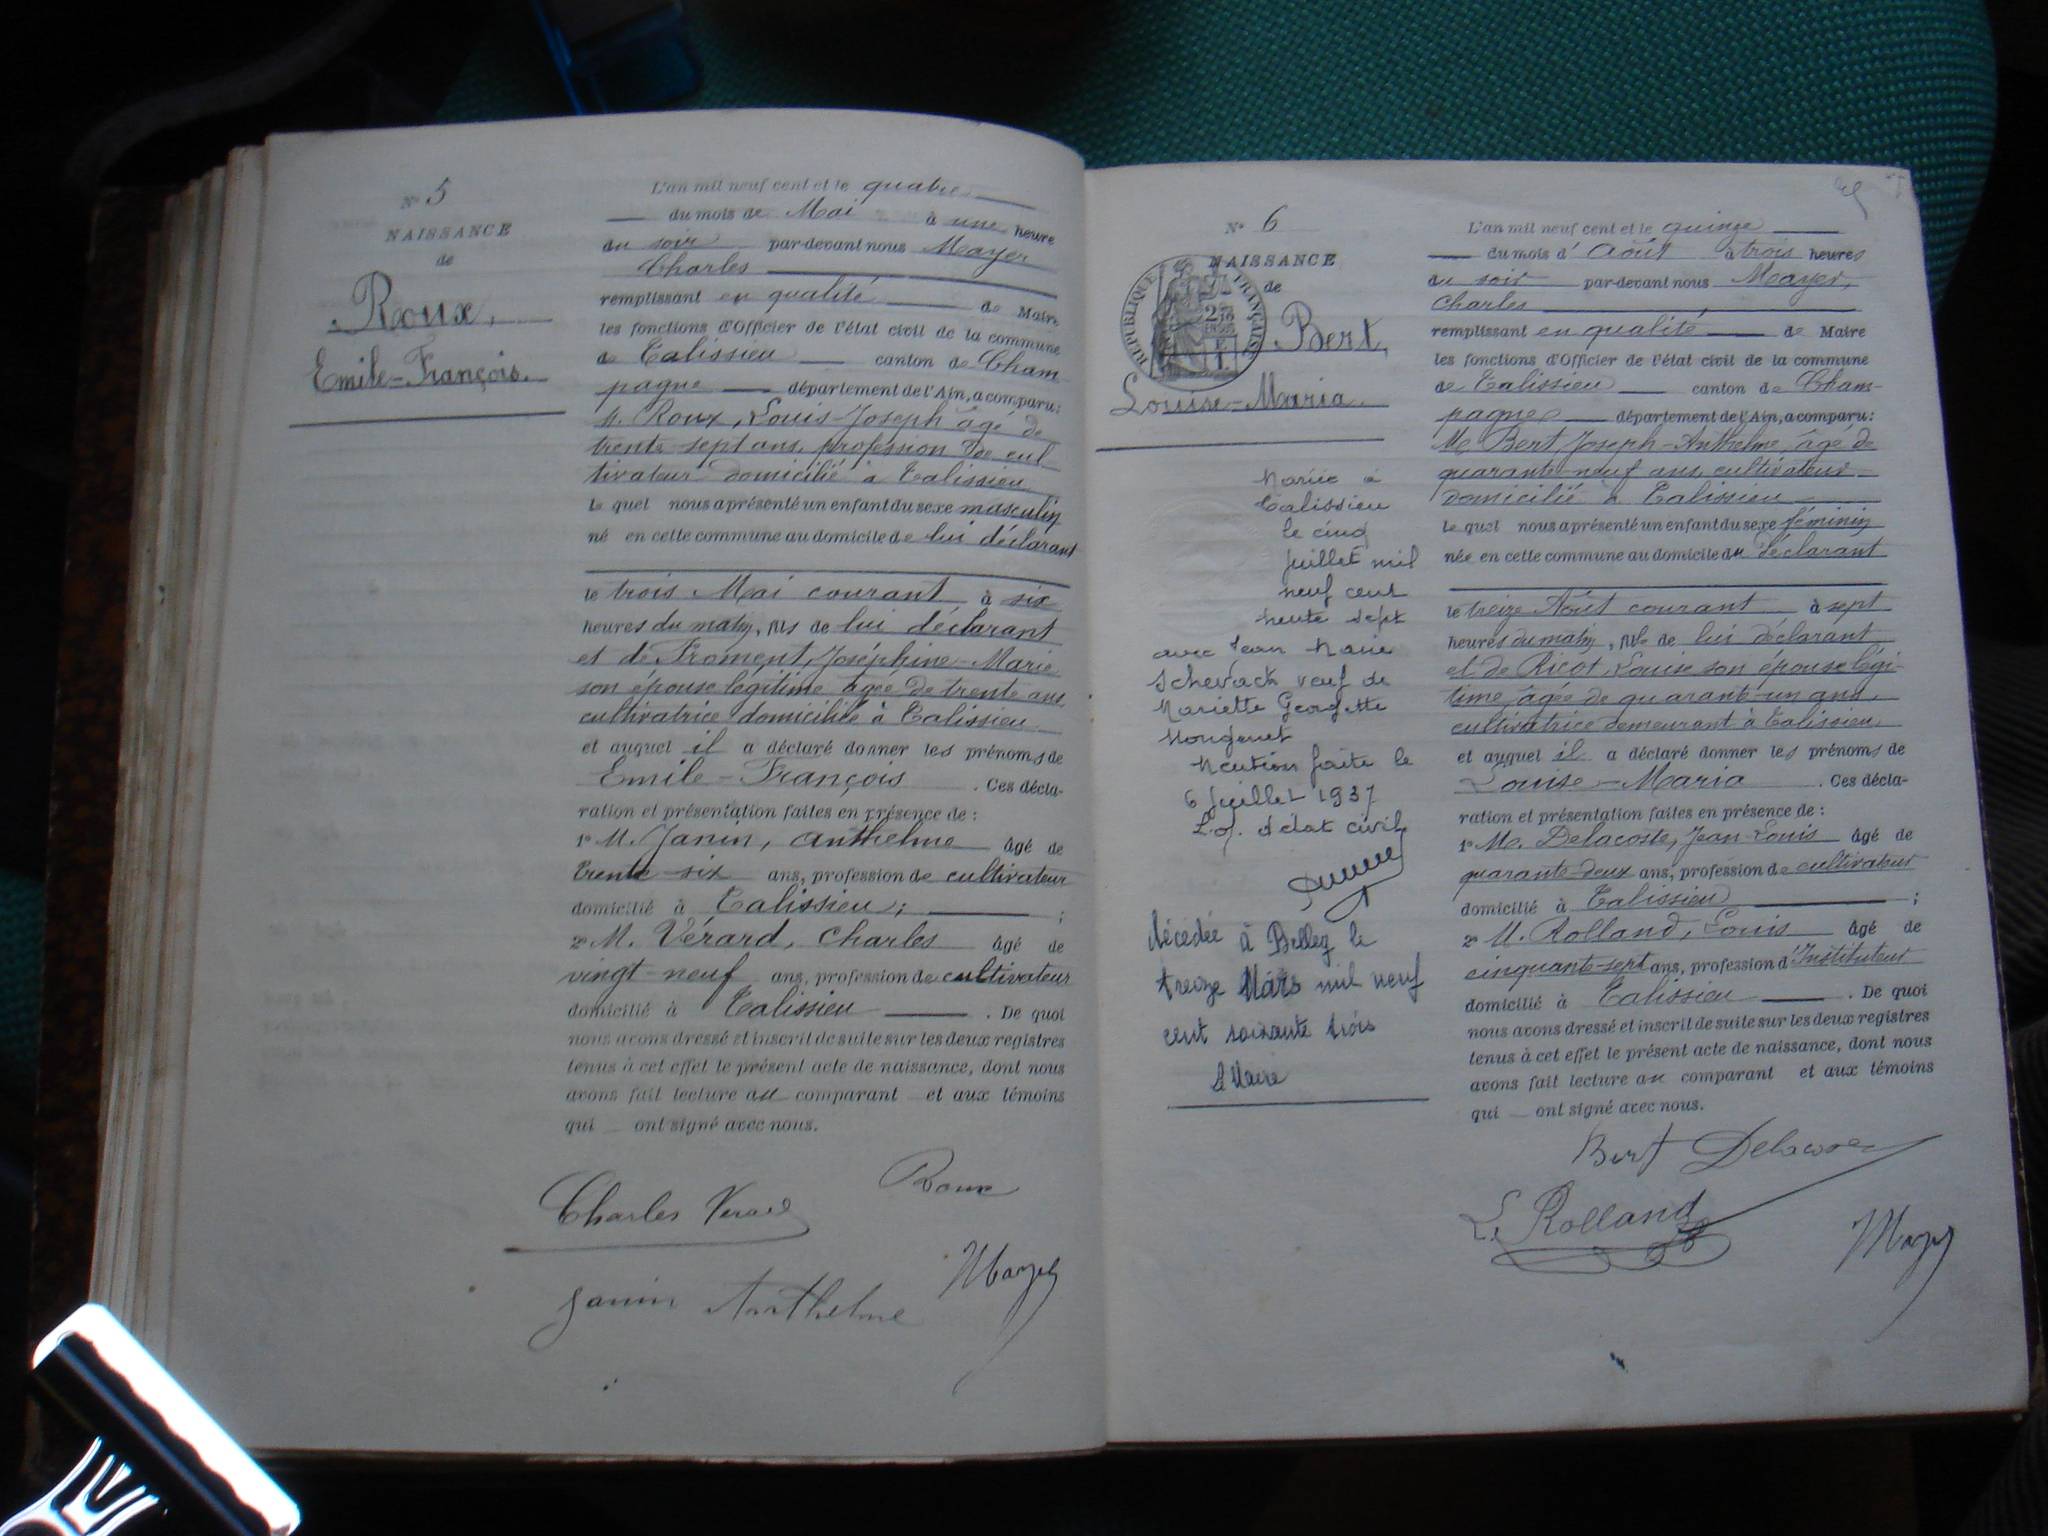 N° 5
NAISSANCE
de
Roux,
Emile-François.
L'an mil neuf cent et le quatre
du mois de Mai à une heure
du soir par-devant nous Mayer
Charles
remplissant en qualité de Maire
les fonctions d'Officier de l'état civil de la commune
de Talissieu canton de Cham
pagne département de l'Ain, a comparu:
M. Roux, Louis-Joseph âgé de
trente-sept ans, profession de cul
tivateur domicilié à Talissieu
Le quel nous a présenté un enfant du sexe masculin
né en cette commune au domicile de lui déclarant
le trois Mai courant à six
heures du matin, fils de lui déclarant
et de Froment, Joséphine-Marie
son épouse légitime âgée de trente ans,
cultivatrice domiciliée à Talissieu
et auquel il a déclaré donner les prénoms de
Emile-François . Ces décla-
ration et présentation faites en présence de :
1° M. Janin, Anthelme âgé de
trente-six ans, profession de cultivateur
domicilié à Talissieu; ;
2° M. Vérard, Charles âgé de
vingt-neuf ans, profession de cultivateur
domicilié à Talissieu . De quoi
nous avons dressé et inscrit de suite sur les deux registres
tenus à cet effet le présent acte de naissance, dont nous
avons fait lecture au comparant et aux témoins
qui ont signé avec nous.
Roux
Charles Verard
Mayer
Janin Anthelme
N° 6
NAISSANCE
de
RÉPUBLIQUE FRANÇAISE
Bert,
Louise-Maria.
Mariée à
Talissieu
le cinq
Juillet mil
neuf cent
trente sept
avec Jean Marie
Schevack veuf de
Mariette Georgette
Mongenet
Mention faite le
6 Juillet 1937
L. of. d'état civil
Décédée à Belley le
treize Mars mil neuf
cent soixante trois
Le Maire
L'an mil neuf cent et le quinze
du mois d' Août à trois heures
du soir par-devant nous Mayer,
Charles
remplissant en qualité de Maire
les fonctions d'Officier de l'état civil de la commune
de Talissieu canton de Cham-
pagne département de l'Ain, a comparu:
M. Bert Joseph-Anthelme âgé de
quarante-neuf ans, cultivateur
domicilié à Talissieu
Le quel nous a présenté un enfant du sexe féminin
née en cette commune au domicile du déclarant
le treize Août courant à sept
heures du matin, fille de lui déclarant
et de Ricot, Louise son épouse légi-
time, âgée de quarante-un ans,
cultivatrice demeurant à Talissieu,
et auquel il a déclaré donner les prénoms de
Louise-Maria . Ces décla-
ration et présentation faites en présence de :
1° M. Delacoste, Jean-Louis âgé de
quarante-deux ans, profession de cultivateur
domicilié à Talissieu ;
2° M. Rolland, Louis âgé de
cinquante-sept ans, profession d'Instituteur
domicilié à Talissieu . De quoi
nous avons dressé et inscrit de suite sur les deux registres
tenus à cet effet le présent acte de naissance, dont nous
avons fait lecture au comparant et aux témoins
qui ont signé avec nous.
Bert Delacoste
L. Rolland
Mayer